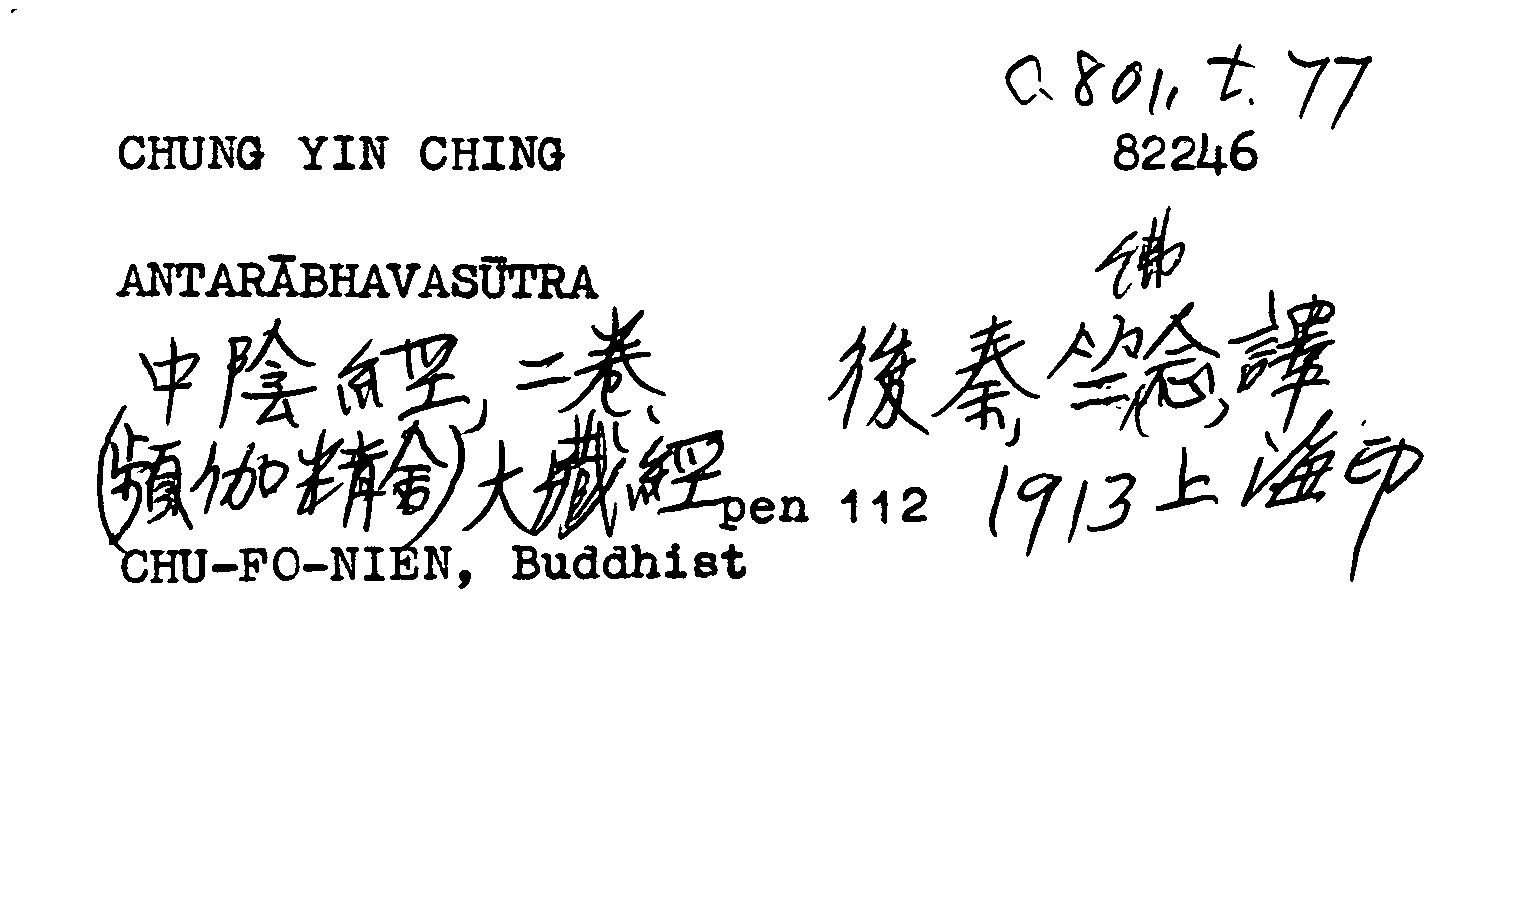 C. 801, t. 77
CHUNG YIN CHING 82246
ANTARĀBHAVASŪTRA
中陰經, 二卷, 後秦, 竺佛念, 譯
(頻伽精舍)大藏經 pen 112 1913上海印
CHU-FO-NIEN, Buddhist